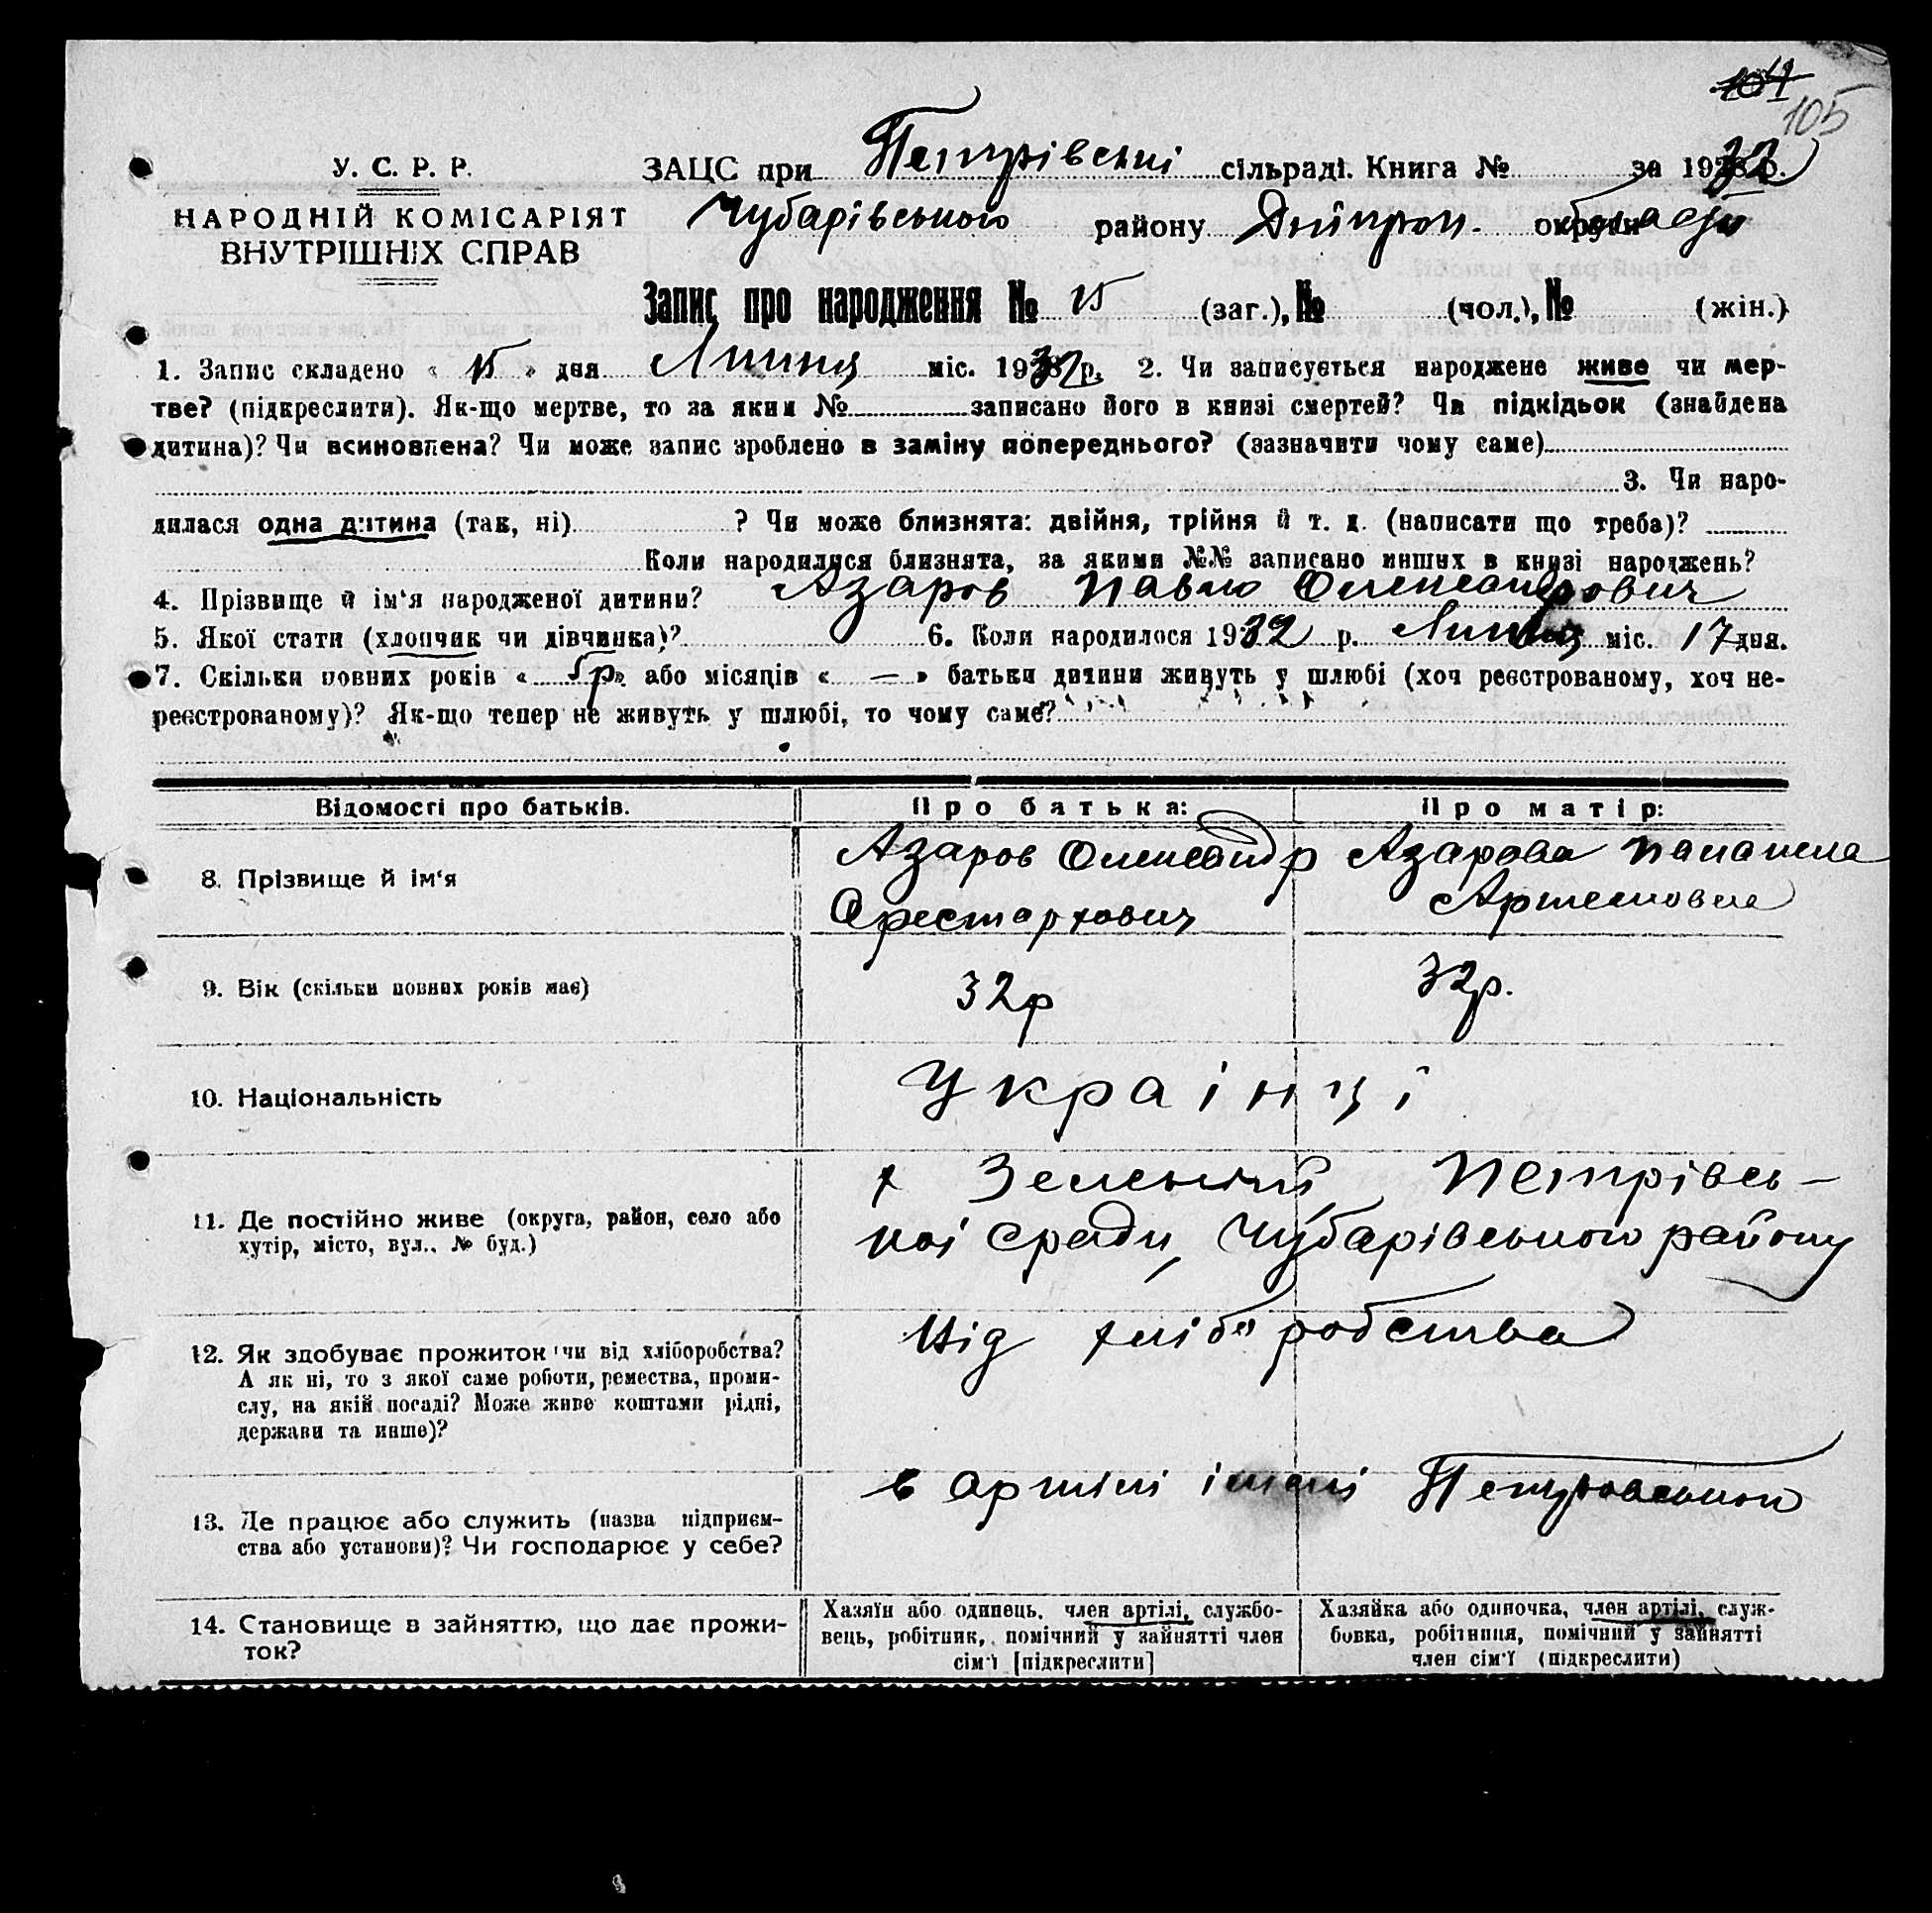 104
105
У. С. Р. Р.
НАРОДНІЙ КОМІСАРІЯТ
ВНУТРІШНІХ СПРАВ
ЗАЦС при Петрівські сільраді. Книга № за 1932 р.
Чубарівського району Дніпроп. області
Запис про народження № 15 (заг.), № (чол.), № (жін.)
1. Запис складено « 15 » дня Липня міс. 1932 р. 2. Чи записується народжене живе чи мер-
тве? (підкреслити). Як-що мертве, то за яким № записано його в книзі смертей? Чи підкідьок (знайдена
дитина)? Чи всиновлена? Чи може запис зроблено в заміну попереднього? (зазначити чому саме)
3. Чи наро-
дилася одна дитина (так, ні) ? Чи може близнята: двійня, трійня й т. д. (написати що треба)?
Коли народилися близнята, за якими №№ записано инших в книзі народжень?
4. Прізвище й ім'я народженої дитини? Азаров Павло Олександрович
5. Якої стати (хлопчик чи дівчинка)? 6. Коли народилося 1932 р. міс. 17 дня.
7. Скільки повних років « 5р » або місяців « — » батьки дитини живуть у шлюбі (хоч реєстрованому, хоч не-
реєстрованому)? Як-що тепер не живуть у шлюбі, то чому саме?
Відомості про батьків. Про батька: Про матір:
8. Прізвище й ім'я
Азаров Олександр Азарова Палажка
Орестархович Артемовна
9. Вік (скільки повних років має) 32р 32р.
10. Національність Українці
11. Де постійно живе (округа, район, село або
хутір, місто, вул., № буд.)
х Зелений, Петрівсь-
кої сради, Чубарівського району
12. Як здобуває прожиток чи від хліборобства?
А як ні, то з якої саме роботи, ремества, проми-
слу, на якій посаді? Може живе коштами рідні,
держави та инше)?
Від хліборобства
13. Де працює або служить (назва підприєм-
ства або установи)? Чи господарює у себе?
в артілі імені Петровського
14. Становище в зайняттю, що дає прожи-
ток?
Хазяїн або одинець, член артілі, службо-
вець, робітник, помічний у зайнятті член
сім'ї [підкреслити]
Хазяйка або одиночка, член артілі, служ-
бовка, робітниця, помічний у зайнятті
член сім'ї (підкреслити)